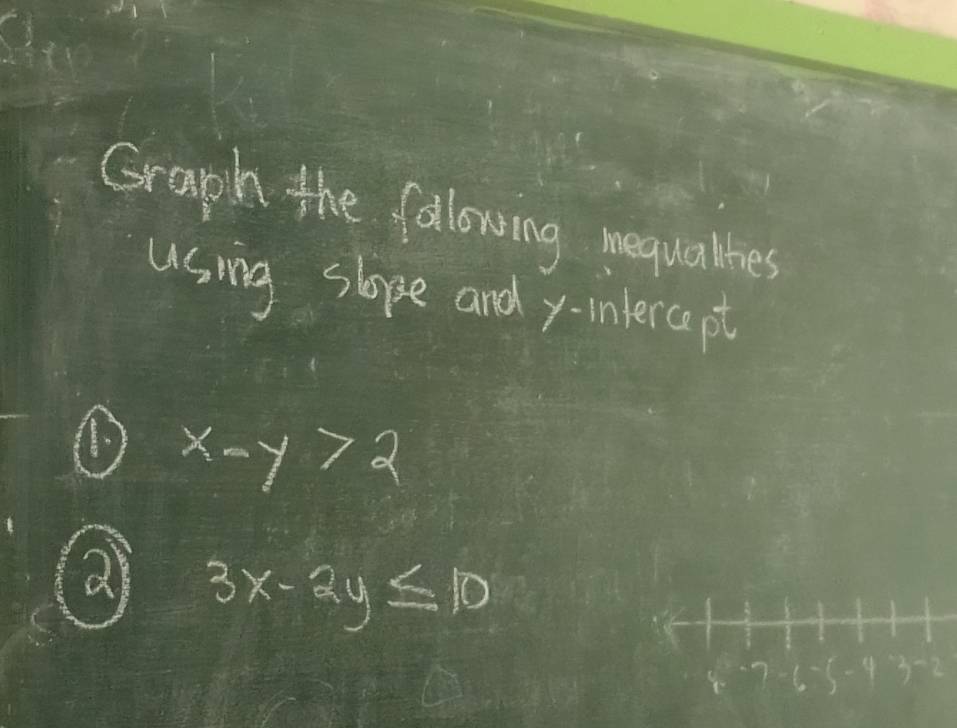 Graph the following inequalities
using slope and y-intercept
1. x-y > 2
2 3x-2y ≤ 10
-7 -6 -5 -4 -3 -2